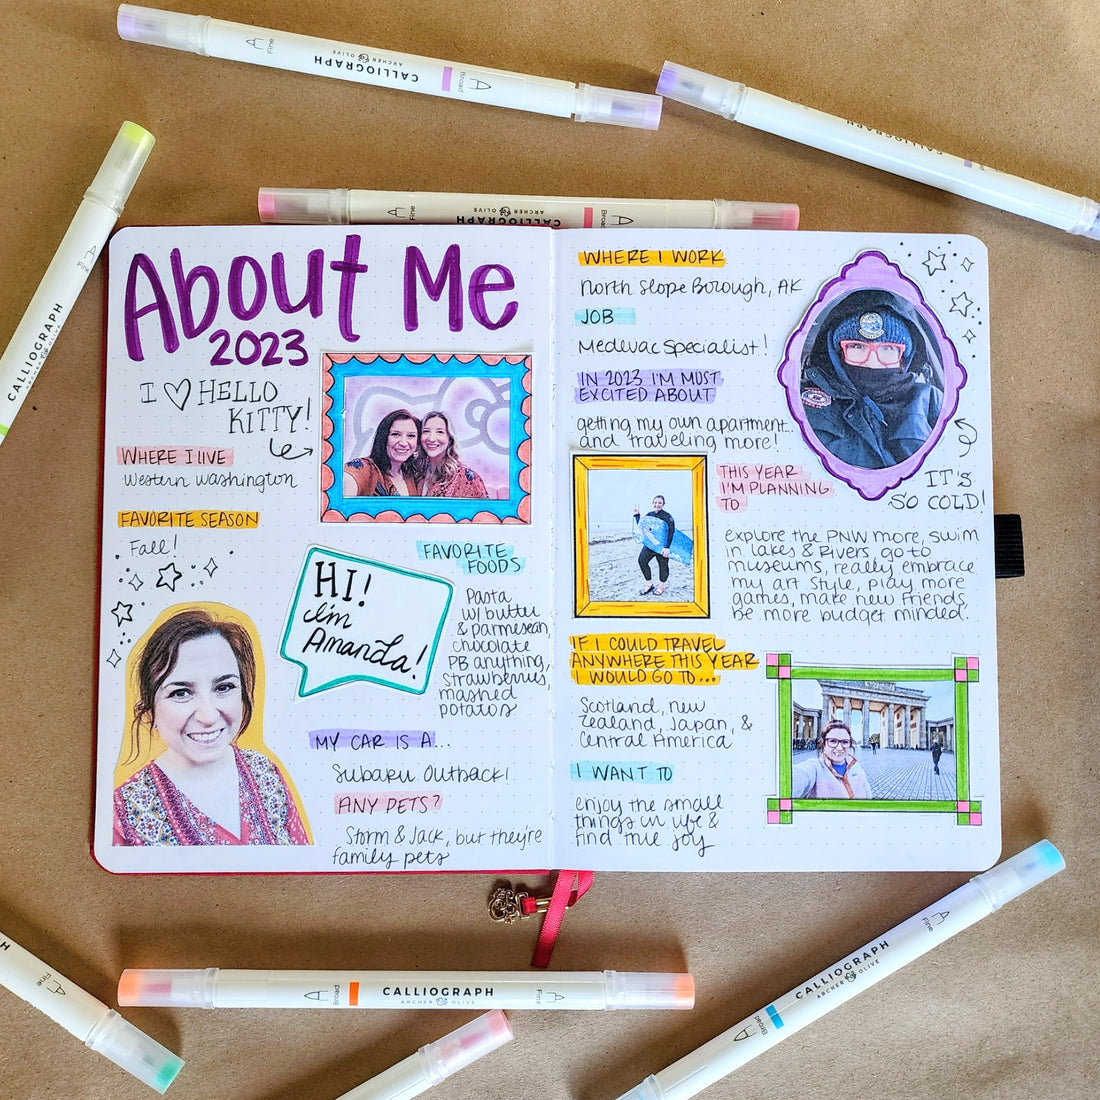 Fine
CALLIOGRAPH
ARCHER OLIVE
Broad
CALLIOGRAPH
Fine
CALLIOGRAPH
ARCHER OLIVE
Broad
CALLIOGRAPH
About Me
2023
I HELLO
KITTY!
WHERE I LIVE
Western Washington
FAVORITE SEASON
Fall!
HI!
I'm
Amanda!
FAVORITE
FOODS
Pasta
w/ butter
& parmesean,
chocolate
PB anything,
strawberries,
mashed
potatoes
MY CAR IS A...
Subaru Outback!
ANY PETS?
Storm & Jack, but they're
family pets
WHERE I WORK
North Slope Borough, AK
JOB
Medevac Specialist!
IN 2023 I'M MOST
EXCITED ABOUT
getting my own apartment
and traveling more!
IT'S
SO COLD!
THIS YEAR
I'M PLANNING
TO
explore the PNW more, swim
in lakes & rivers, go to
museums, really embrace
my art style, play more
games, make new friends,
be more budget minded.
IF I COULD TRAVEL
ANYWHERE THIS YEAR
I WOULD GO TO...
Scotland, New
Zealand, Japan, &
Central America
I WANT TO
enjoy the small
things in life &
find true joy
Fine
Broad
CALLIOGRAPH
ARCHER OLIVE
Fine
Broad
CALLIOGRAPH
ARCHER OLIVE
Fine